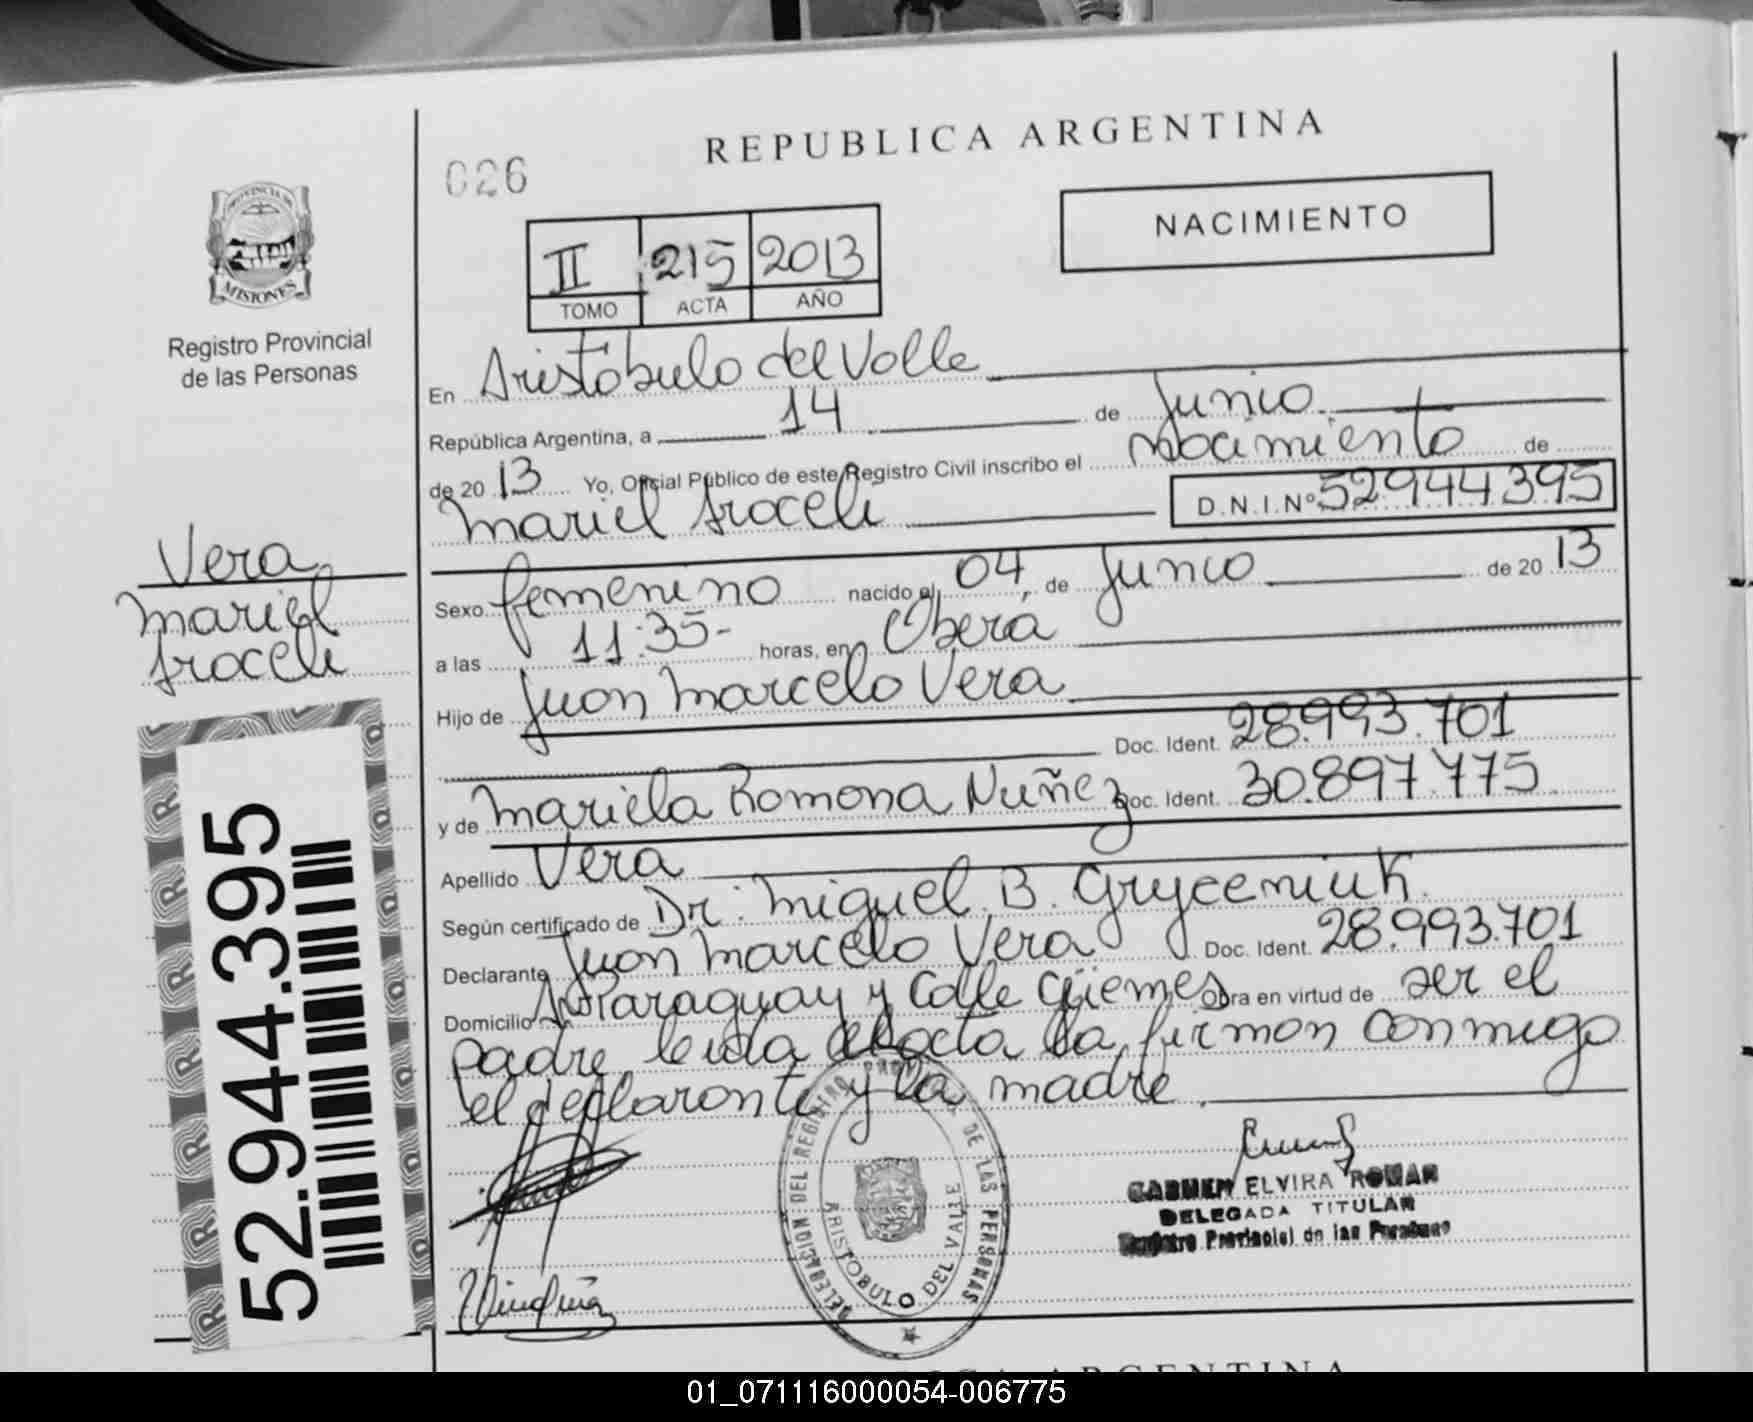 REPUBLICA ARGENTINA
026
PROVINCIA DE
MISIONES
Registro Provincial
de las Personas
NACIMIENTO
II 215 2013
TOMO ACTA AÑO
En Aristóbulo del Valle
República Argentina, a 14 de Junio
de 20 13 Yo, Oficial Público de este Registro Civil inscribo el nacimiento de
Mariel Araceli D.N.I.Nº 52.944.395
Vera
Mariel
Araceli
Sexo femenino nacido el 04 de Junio de 20 13
a las 11:35- horas, en Oberá
Hijo de Juan Marcelo Vera
Doc. Ident. 28.993.701
y de Mariela Ramona Nuñez Doc. Ident. 30.897.775
Apellido Vera
Según certificado de Dr. Miguel B. Gryceniuk.
Declarante Juan Marcelo Vera Doc. Ident. 28.993.701
Domicilio Av Paraguay y Calle Güemes Obra en virtud de ser el
padre, leida el acta la firman conmigo
el declarante y la madre
52.944.395
DELEGACION DEL REGISTRO PROVINCIAL DE LAS PERSONAS
ARISTOBULO DEL VALLE
CARMEN ELVIRA ROMAN
DELEGADA TITULAR
Registro Provincial de las Personas
ARGENTINA
01_071116000054-006775